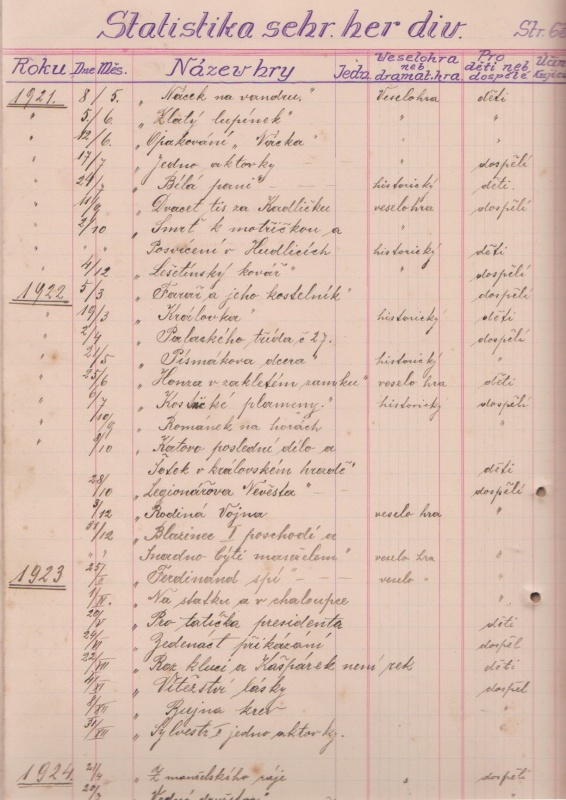 Statistika sehr. her div. Str. 6
Roku Dne Měs. Název hry Jedn. Veselohra neb dramat. hra Pro děti neb dospělé Účin
1921. 8/5. „Nácek na vandru." Veselohra děti
" 5/6 „Zlatý lupínek" " "
" 12/6 „Opakování „Nácka" "
" 17/7 „Jedno aktovky — " dospělí
" 24/7 „Bílá paní" historický děti.
" „Dvacet tis za Kadličku veselohra dospělí
" 2/10 „Smrť k motřičkou a "
" " „Posvícení v Hudlicích historický děti
" 4/12 „Lešetínský kovář" " dospělí
1922 5/3 „Farář a jeho kostelník" dospělí
" 19/3 „Královka" historický děti
" 2/4 „Palackého třída č 27. dospělí
" 21/5 „Písmákova dcera" historický "
" 25/6 „Honza v zakletém zámku" veselo hra děti
" 6/7 „Kostnické plameny." historický dospělí
" 10/9 „Románek na horách "
" 8/10 „Katovo poslední dílo a
Šotek v královském hradě" děti
28/10 „Legionářova Nevěsta" — dospělí
3/12 „Rodiná Vojna veselo hra "
31/12 „Blázinec I poschodí a
" " Snadno býti manželem" veselo hra "
1923 25/II „Ferdinand spí" — — — veselo " "
1/IV. „Na statku a v chaloupce "
20/V „Pro tatíčka presidenta děti
24/VI „Jedenáct přikázání dospěl
22/VII „Roz. kluci a Kašpárek není rek děti
4/XI „Vítěství lásky dospěl
„Bujna krev
31/XII „Sylvestr I jedno aktovky.
1924. 21/4 „Z manželského ráje " dospěti
20/7